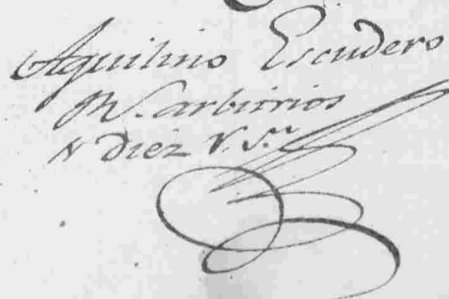 Aquilino Escudero
arbitrios
Diez